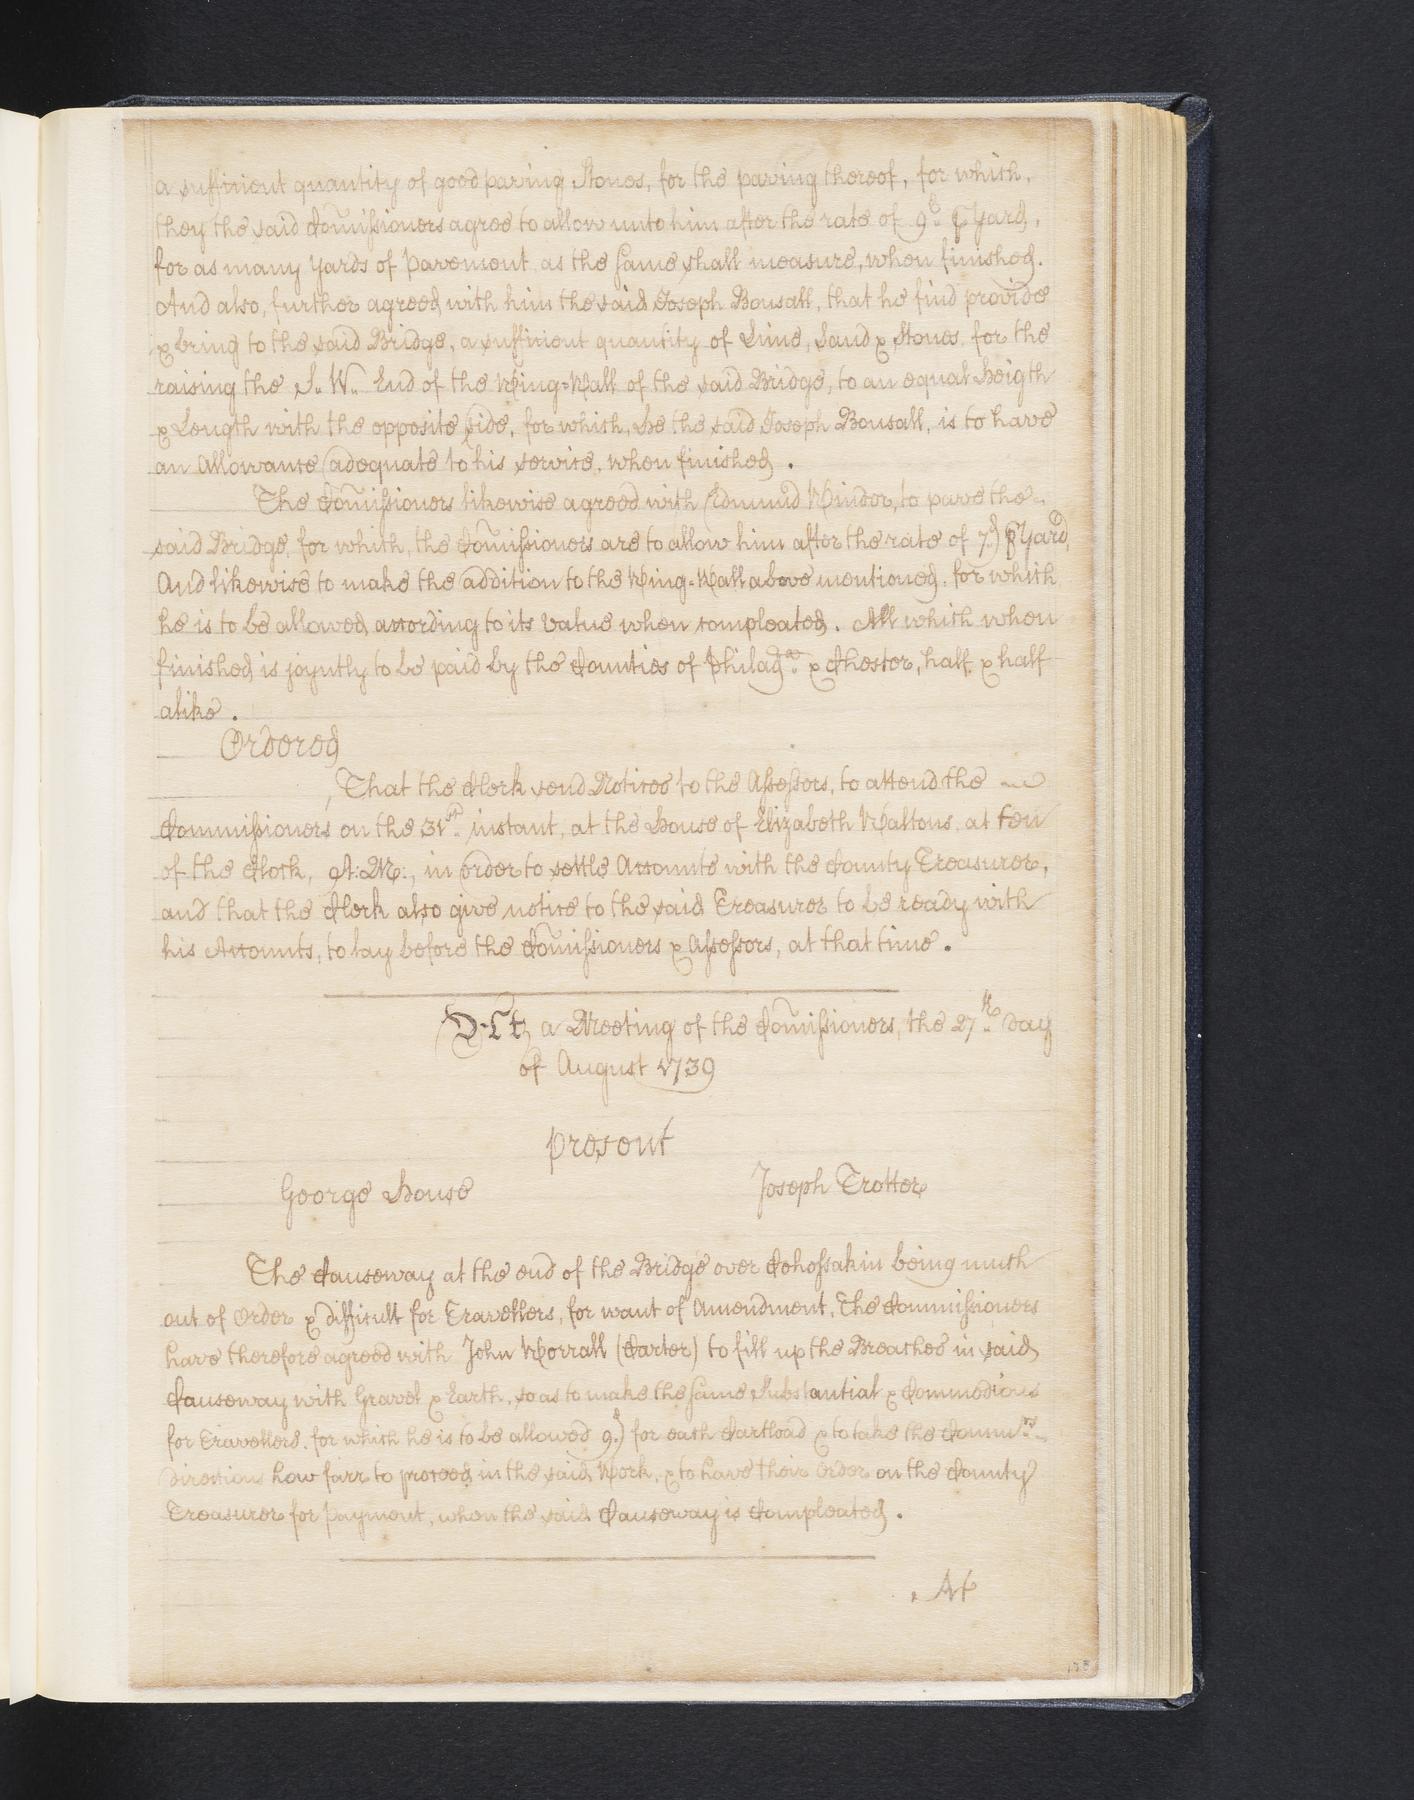 a sufficient quantity of good paving Stones, for the paving thereof, for which,
they the said Com̃issioners agree to allow unto him after the rate of 9d. ⅌ Yard,
for as many Yards of Pavement as the same shall measure, when finished.
And also, further agreed with him the said Joseph Bonsall, that he find provide
& bring to the said Bridge, a sufficient quantity of Lime, Sand & Stones for the
raising the S. W. End of the Wing=Wall of the said Bridge, to an equal Heigth
& Length with the opposite side, for which, he the said Joseph Bonsall, is to have
an Allowance adequate to his service, when finished.
The Com̃issioners likewise agreed with Edmund Winder, to pave the
said Bridge, for which, the Com̃issioners are to allow him after the rate of 7d ⅌ Yard,
And likewise to make the addition to the Wing=Wall above mentioned, for which
he is to be allowed according to its Value when compleated. All which when
finished is joyntly to be paid by the Counties of Philada. & Chester, half & half
alike.
Ordered
That the Clerk send Notices to the Assessors, to attend the
Commissioners on the 31st. instant, at the House of Elizabeth Waltons, at ten
of the Clock, A:M:, in order to settle Accounts with the County Treasurer,
and that the Clerk also give notice to the said Treasurer to be ready with
his Accounts, to lay before the Com̃issioners & Assessors, at that time.
At a Meeting of the Com̃issioners, the 27th. Day
of August 1739
Present
George House Joseph Trotter
The Causeway at the end of the Bridge over Cohossakin being much
out of Order & difficult for Travellers, for want of Amendment, The Commissioners
have therefore agreed with John Worrall (Carter) to fill up the Breaches in said
Causeway with Gravel & Earth, so as to make the same Substantial & Commodious
for Travellers, for which he is to be allowed 9d for each Cartload & to take the Commrs.
directions how farr to proceed in the said Work, & to have their Order on the County
Treasurer for Payment, when the said Causeway is Compleated.
At